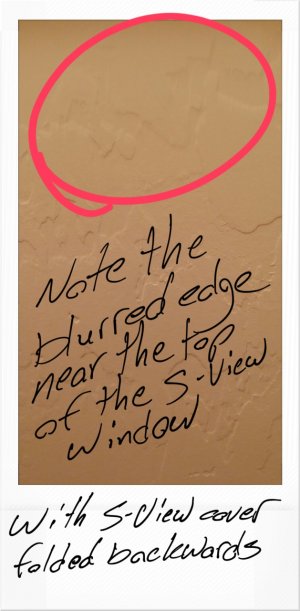 Note the
blurred edge
near the top
of the S-View
window
With S-View cover
folded backwards